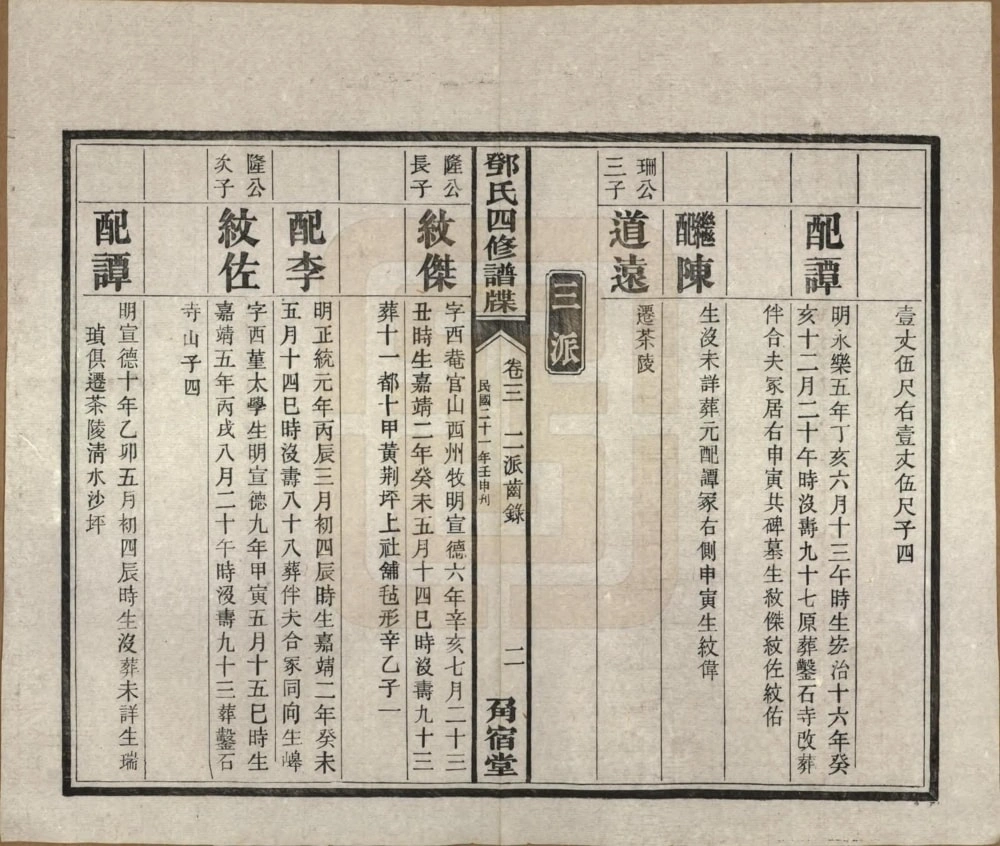 壹丈伍尺右壹丈伍尺子四
配譚
明永樂五年丁亥六月十三午時生宏治十六年癸
亥十二月二十午時沒壽九十七原葬鑿石寺改葬
伴合夫冢居右申寅共碑墓生紋傑紋佐紋佑
繼配陳
生沒未詳葬元配譚冢右側申寅生紋偉
珊公
三子
道遠
遷茶陵
三派
鄧氏四修譜牒
卷三
二派齒錄
民國二十一年壬申刊
二
角宿堂
隆公
長子
紋傑
字西菴官山西州牧明宣德六年辛亥七月二十三
丑時生嘉靖二年癸未五月十四巳時沒壽九十三
葬十一都十甲黃荆坪上社舖毡形辛乙子一
配李
明正統元年丙辰三月初四辰時生嘉靖二年癸未
五月十四巳時沒壽八十八葬伴夫合冢同向生嶂
隆公
次子
紋佐
字西菫太學生明宣德九年甲寅五月十五巳時生
嘉靖五年丙戌八月二十午時沒壽九十三葬鑿石
寺山子四
配譚
明宣德十年乙卯五月初四辰時生沒葬未詳生瑞
瑣俱遷茶陵清水沙坪